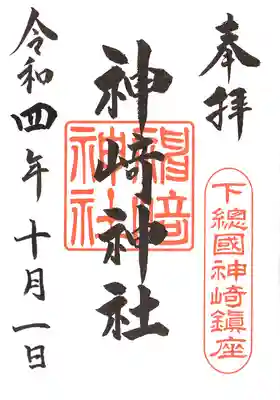 奉拝
下總國神崎鎮座
神崎神社
神崎神社
令和四年十月一日